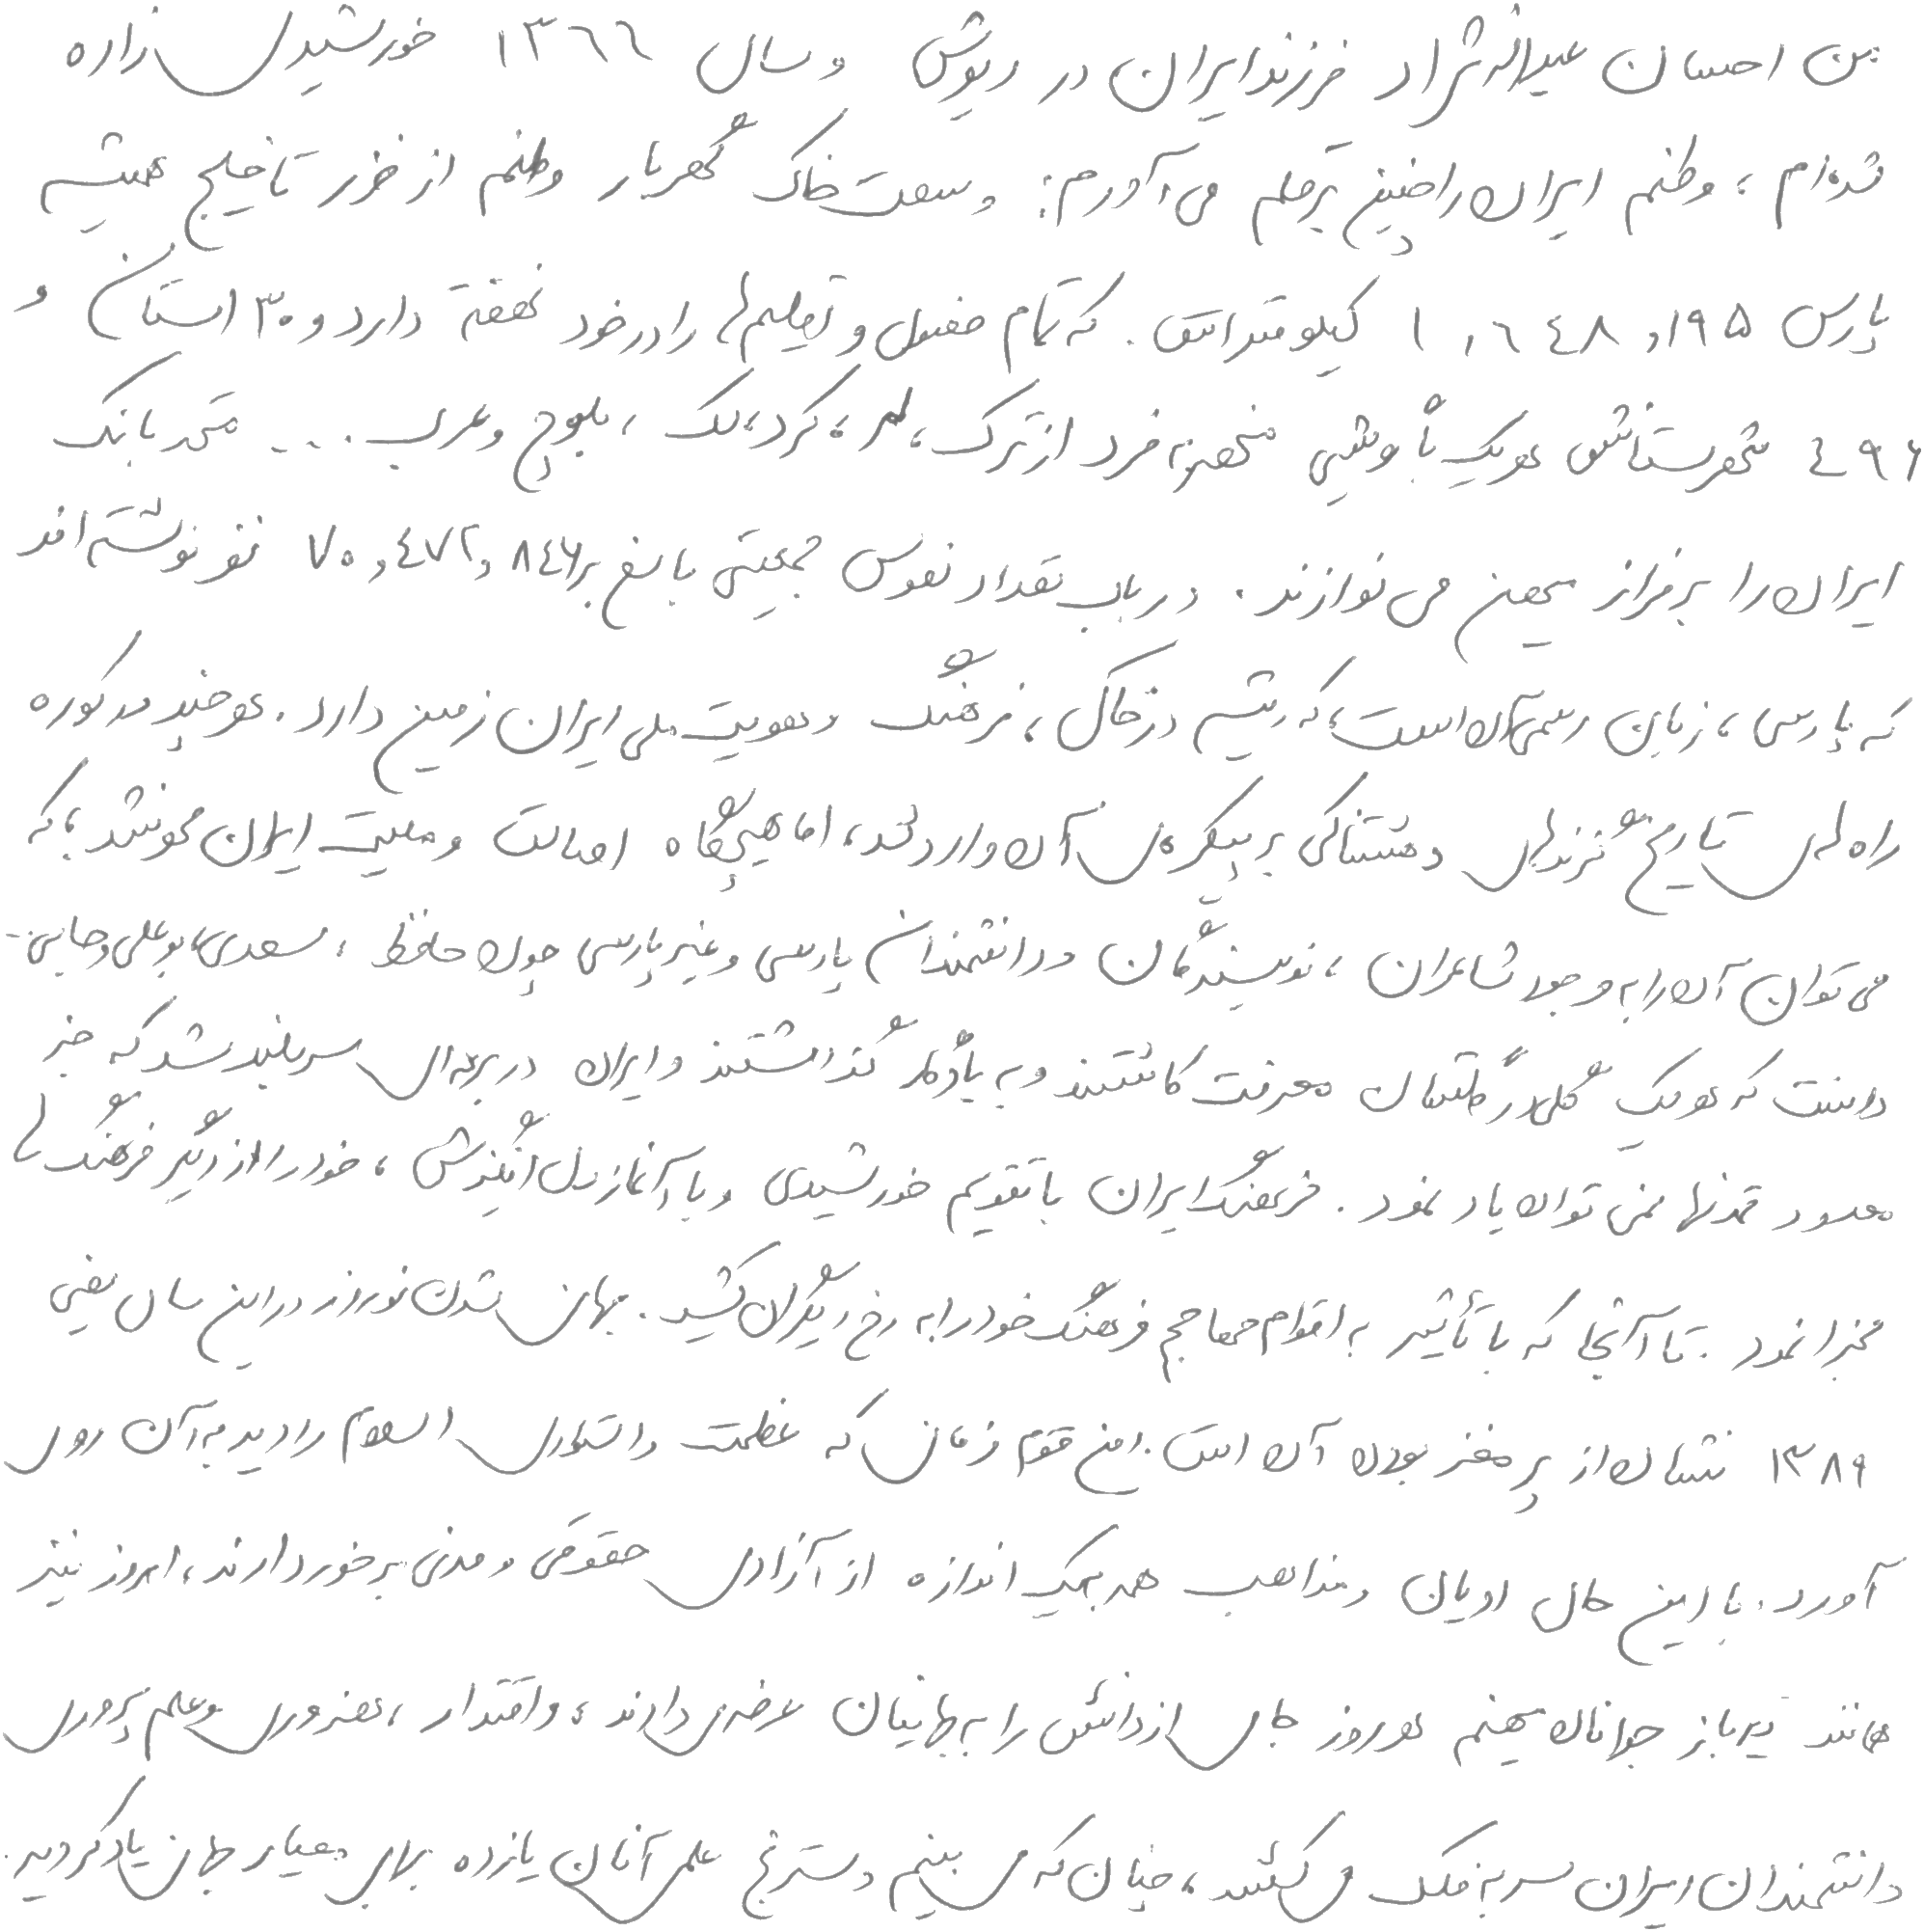 من احسان عبدالله نژاد فرزند ایران در ریوش و سال ۱۳۶۶ خورشیدی زاده
شده‌ام، وطنم ایران را چنین بر قلم می‌آورم: وسعت خاک گهربار وطنم از خزر تا خلیج همیشه
پارس ۱,۶۴۸,۱۹۵ کیلومتر است. که تمام فصول و اقلیم‌ها را در خود نهفته دارد و ۳۰ استان و
۴۹۶ شهرستانش هریک با گویشی منحصر به فرد از ترک، لر، کرد، لک، بلوچ و عرب ... متحد بانگ
ایران را بر فراز میهن می‌نوازند. در باب تعداد نفوس جمعیتی بالغ بر ۷۰,۴۷۲,۸۴۶ نفر نوشته‌اند
که پارسی، زبان رسمی آن است، که ریشه در خاک، فرهنگ و هویت ملی ایران زمین دارد. هرچند در کوره
راه‌های تاریخ گزندهای وحشتناکی بر پیکره‌ی آن وارد شد، اما هیچ‌گاه اصالت و ملیت ایران محو نشد، که
می‌توان آن را به وجود شاعران، نویسندگان و دانشمندان پارسی و غیر پارسی چون حافظ، سعدی، بوعلی و جامی
دانست که هریک گلی در گلستان معرفت کاشتند و به یادگار گذاشتند و ایران در برهه‌ای سربلند شد که جز
معدود تمدنها نمی توان یاد نمود. فرهنگ ایران با تقویم خورشیدی و با آغاز دل انگیزش، خود را از دیگر فرهنگ‌ها
مجزا نمود. تا آنجا که با تأثیر به اقوام مهاجم فرهنگ خود را به رخ دیگران کشید. جهانی شدن نوروز در این سال یعنی
۱۳۸۹ نشان از پر مغز بودن آن است. این قوم زمانی که عظمت و استواری اسلام را دید به آن روی
آورد. با این حال ادیان و مذاهب همه به یک اندازه از آزادی حقوقی و مدنی برخوردارند، امروز نیز
مانند دیرباز جوانان میهنم هر روز جامی از دانش را به جهانیان عرضه می‌دارند، و اقتدار، هنروری و علم پروری
دانشمندان ایران سر به فلک می‌کشد، چنان که می‌بینیم دسترنج علمی آنان یازده برابر معیار جهانی یاد گردید.